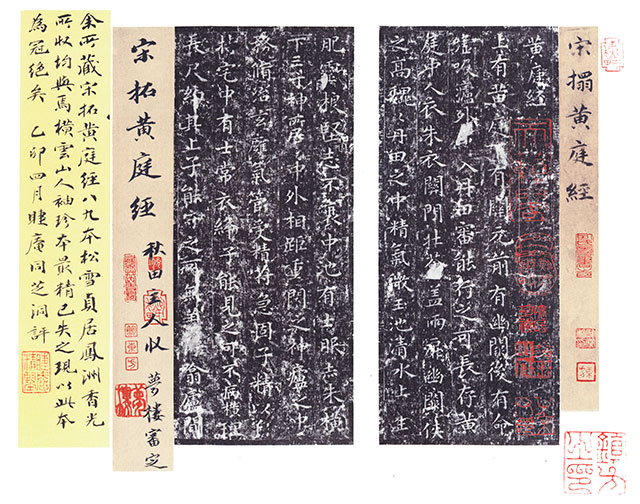 宋搨黄庭經
黄庭經
上有黄庭下有關元前有幽闕後有命
嘘吸廬外出入丹田審能行之可長存黄
庭中人衣朱衣關門壯籥蓋兩扉幽闕俠
之高魏魏丹田之中精氣微玉池清水上生
肥靈根堅志不衰中池有士服赤朱横
下三寸神所居中外相距重閉之神廬之中
務脩治玄廱氣管受精符急固子精以自
持宅中有士常衣絳子能見之可不病横理
長尺約其上子能守之可無恙呼噏廬間
宋拓黄庭經
秋田主人收
夢樓審定
余所藏宋拓黄庭經八九本松雪貞居鳳洲香光
所收均與焉横雲山人袖珍本最精已失之現以此本
為冠絕矣 乙卯四月睫庵同芝洞評